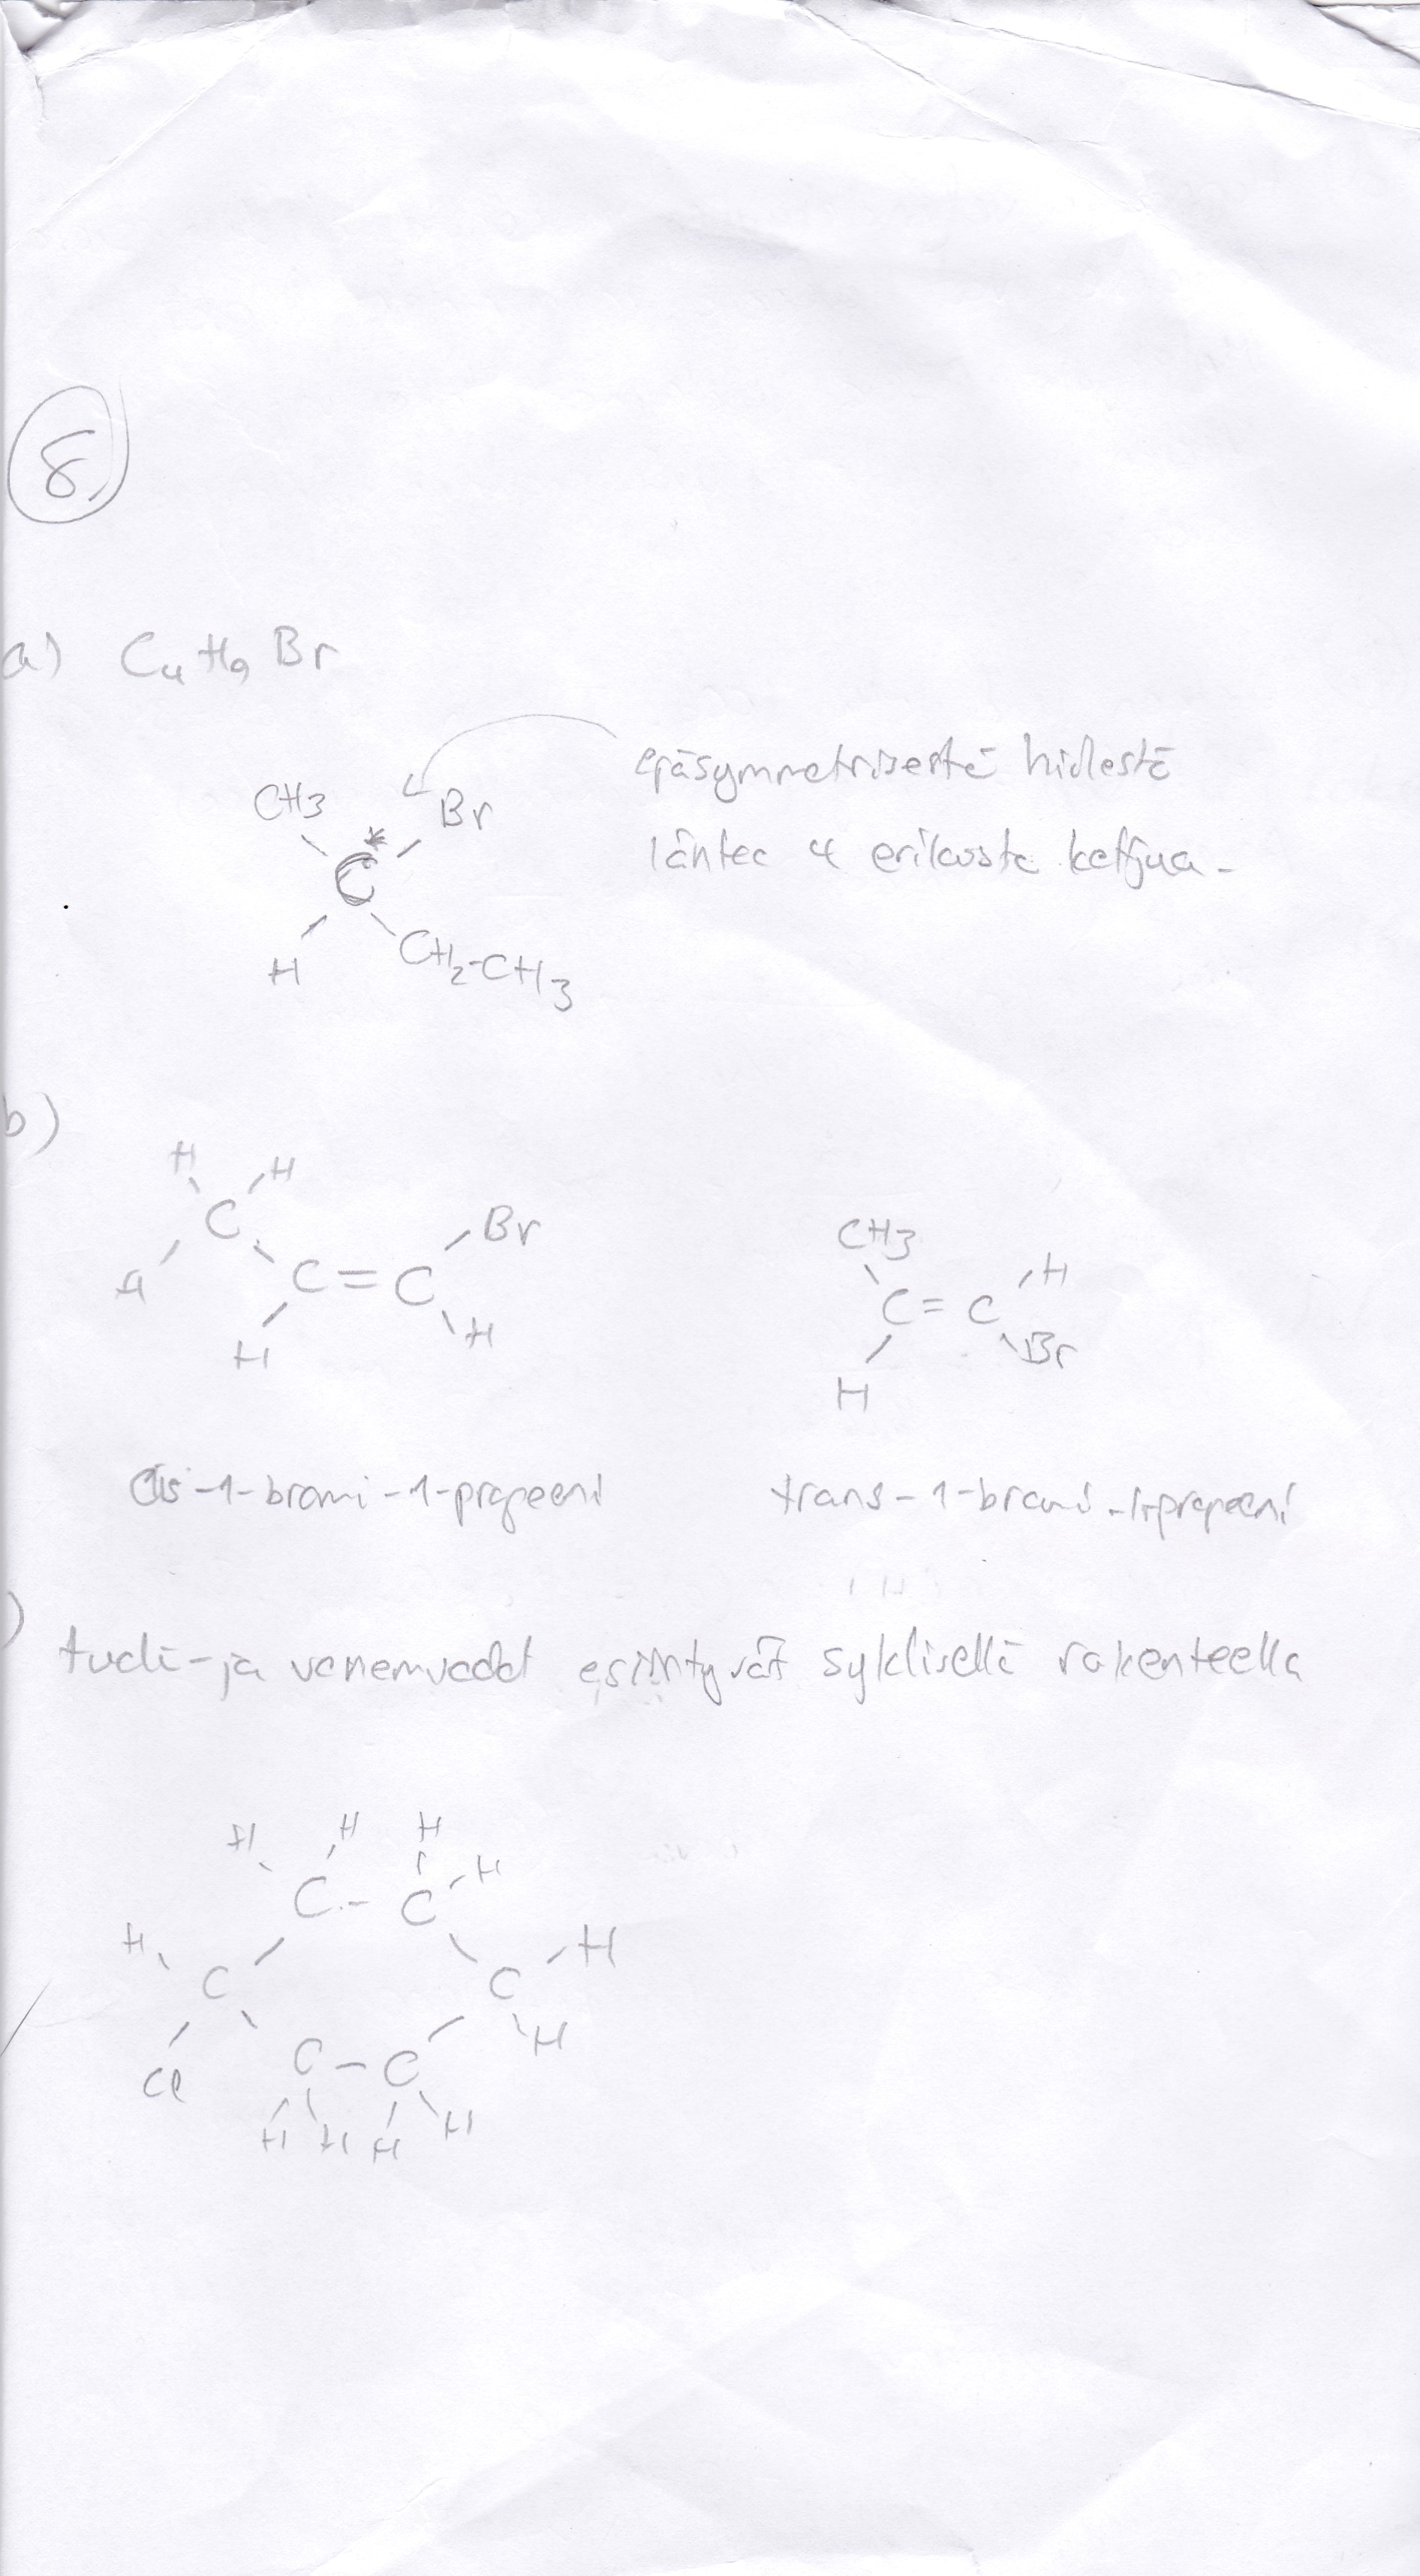 8.
a) C4H9Br
epäsymmetrisestä hiilestä
CH3 Br
lähtee 4 erilaista ketjua.
C*
H CH2-CH3
b)
H H
C Br CH3
H C=C H
H H C=C
H Br
cis-1-bromi-1-propeeni trans-1-bromi-1-propeeni
)
tuoli- ja venemuodot esiintyvät syklisellä rakenteella
H H H
C-C H
H C C H
Cl H
C-C
H H H H